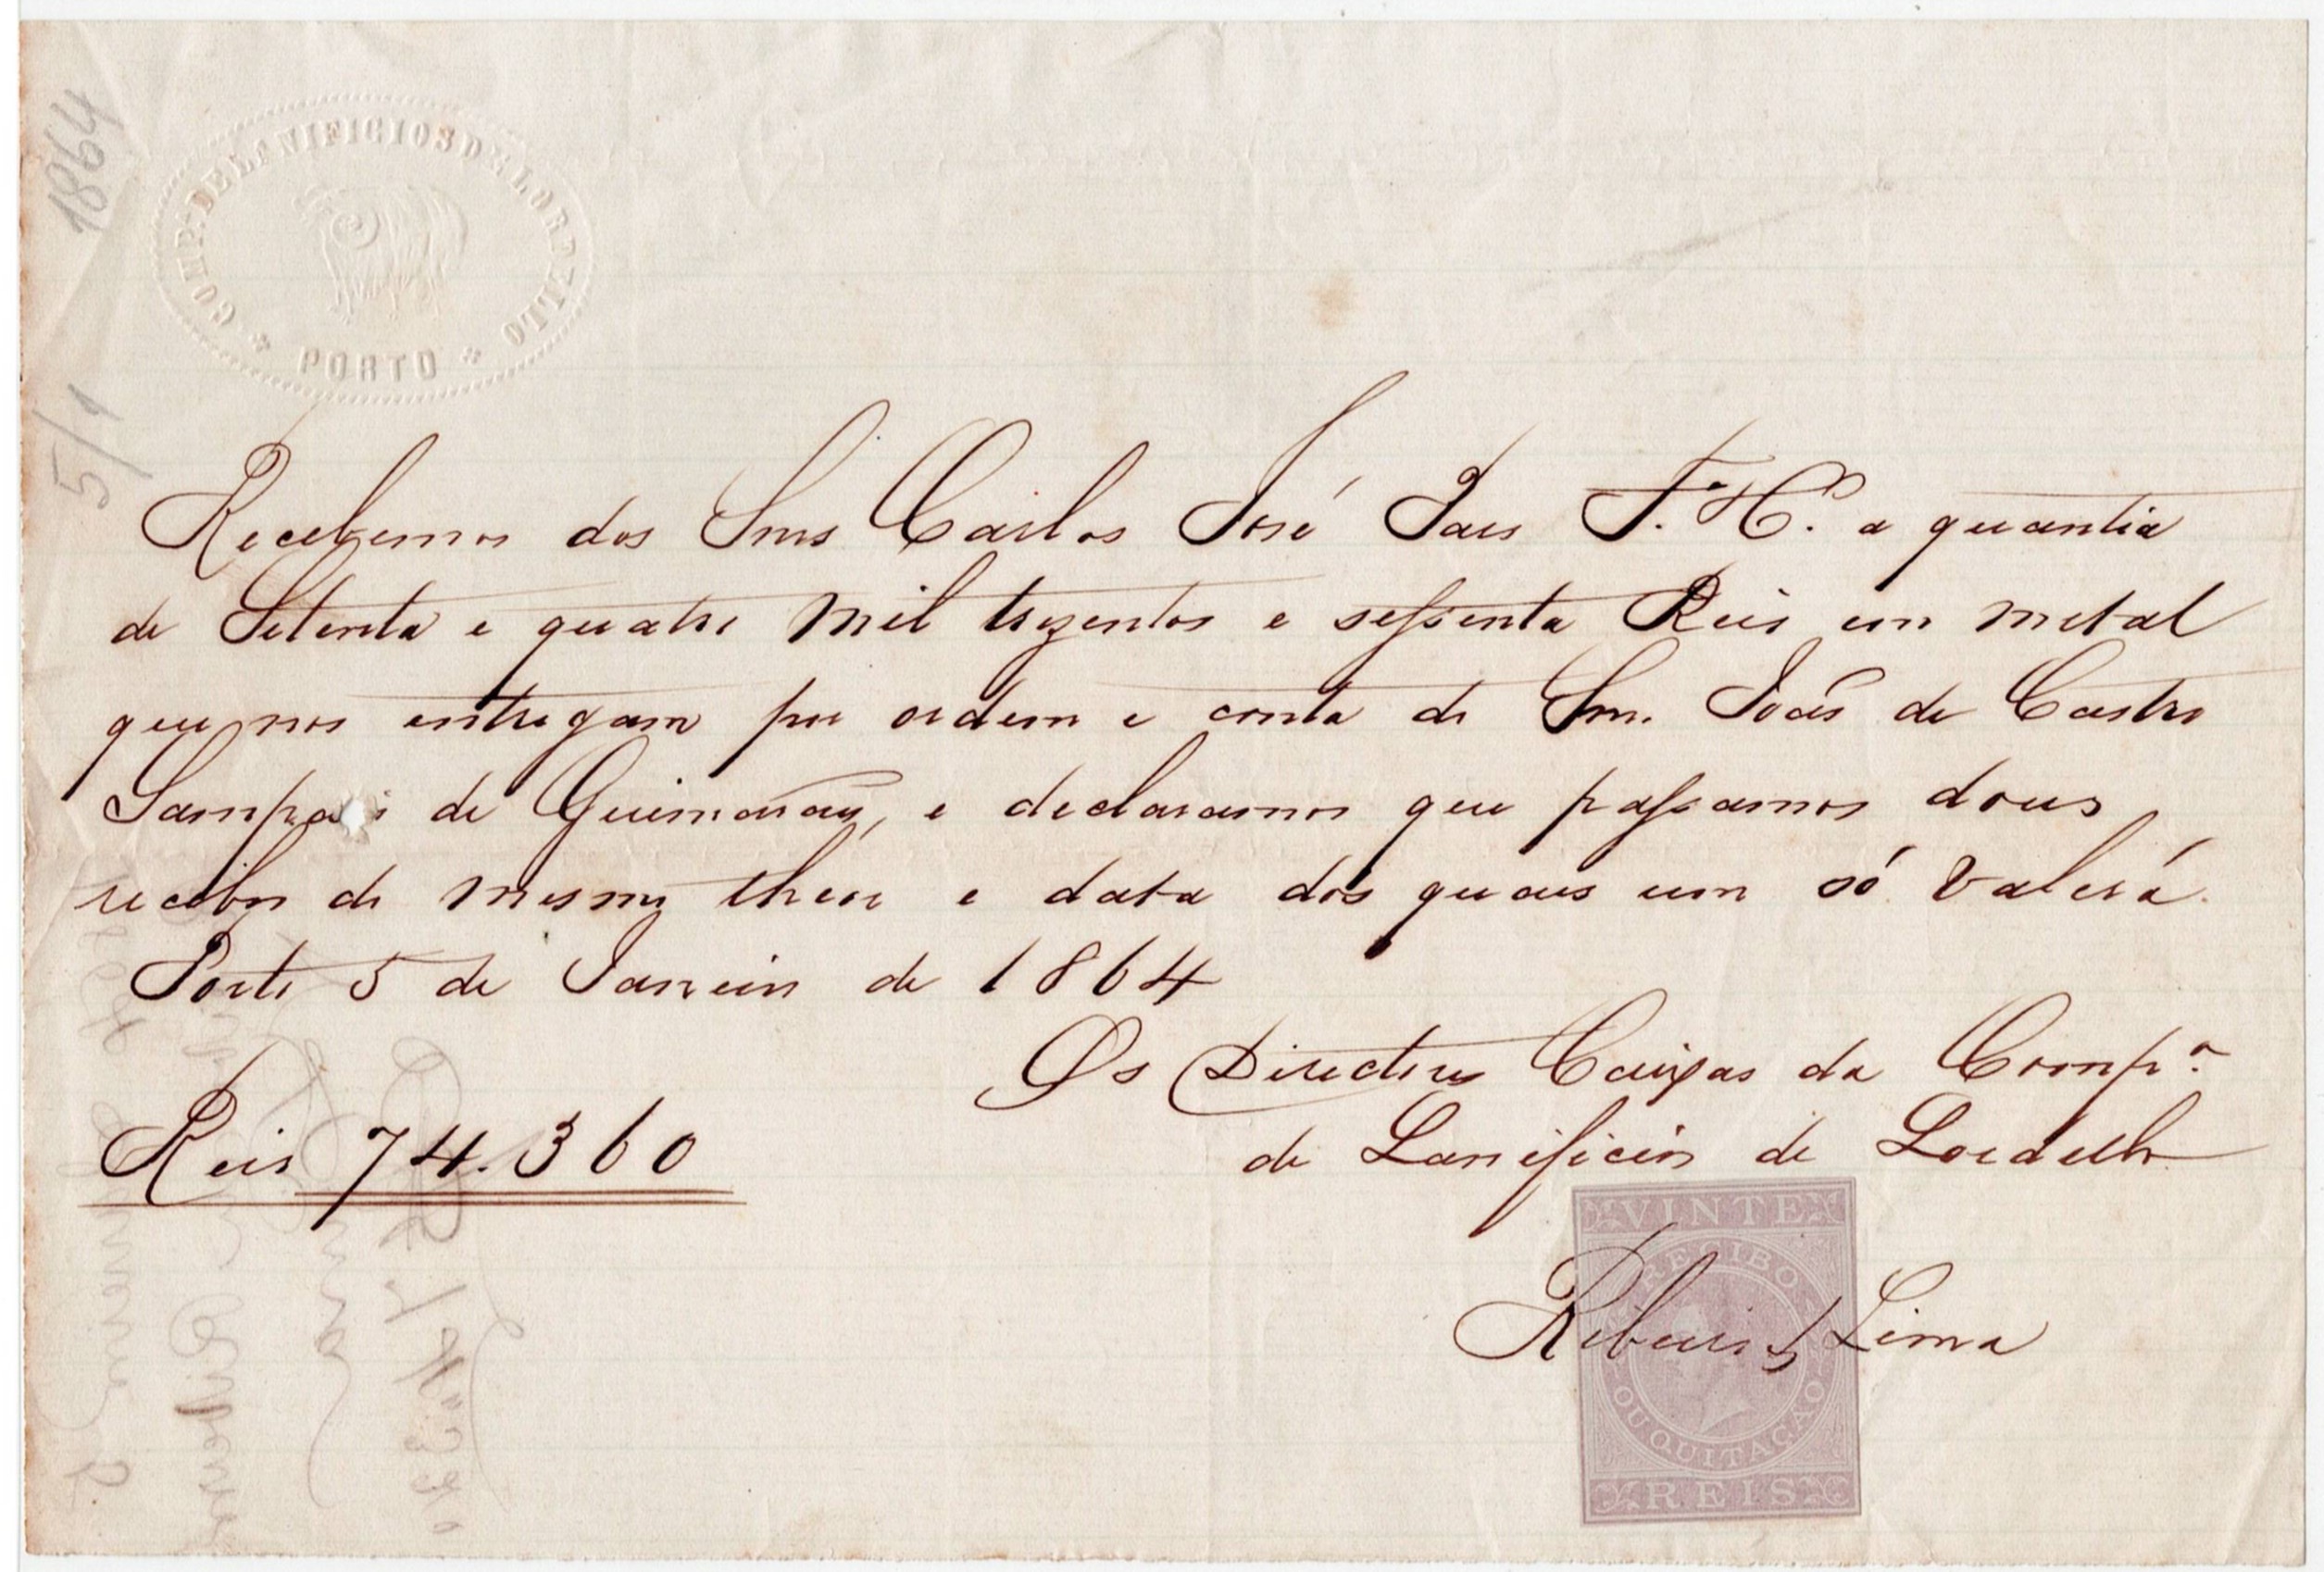 1864
5/1
COMPª DE LANIFICIOS DE LORDELLO
* PORTO *
Recebemos dos Snrs Carlos José Paes F.º & Cª. a quantia
de Setenta e quatro mil trezentos e sessenta Reis em metal
que nos entregam por ordem e conta do Snr. João de Castro
Sampaio de Guimarães, e declaramos que passamos dous
recibos do mesmo theor e data dos quaes um só valerá.
Porto 5 de Janeiro de 1864
Os Directores Caixas da Compª.
de Lanificios de Lordello
Reis 74.360
VINTE
RECIBO
Ribeiro Lima
OU QUITAÇÃO
REIS